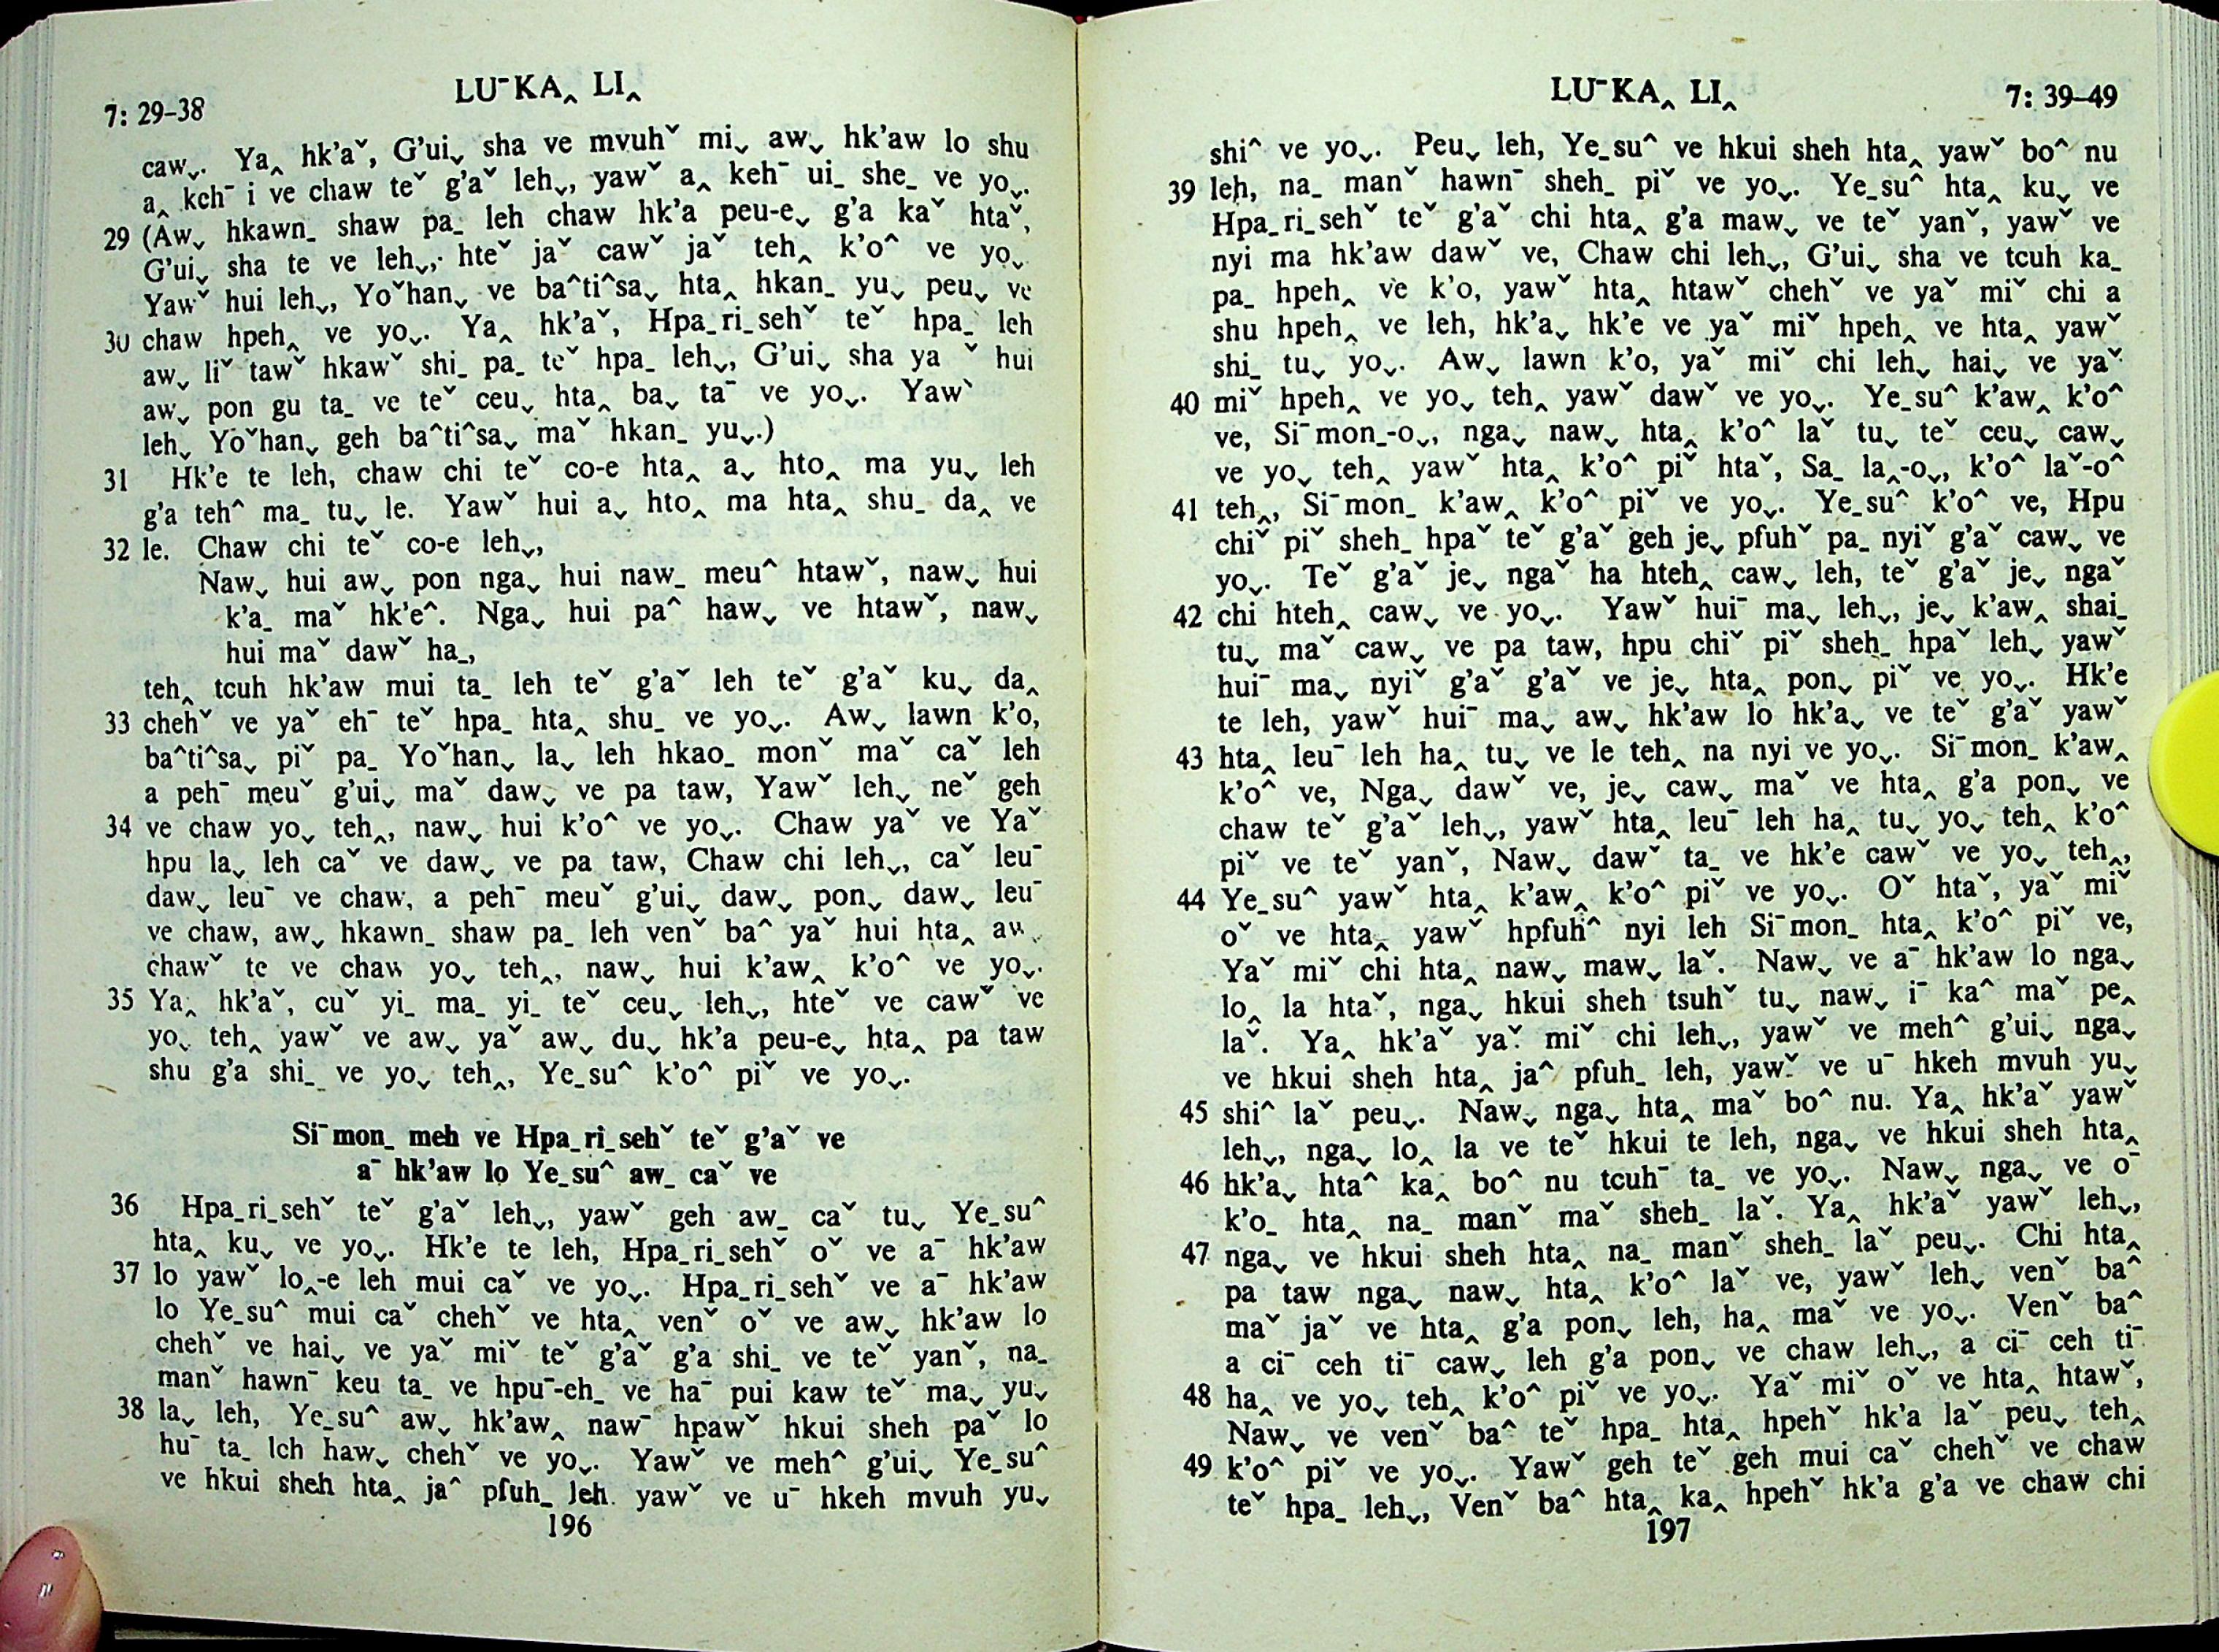 7: 29–38
LUˉKA‸ LI‸
caw⌄. Ya‸ hk'aˇ, G'ui⌄ sha ve mvuhˇ mi⌄ aw⌄ hk'aw lo shu
a‸ kehˉ i ve chaw teˇ g'aˇ leh⌄, yawˇ a‸ kehˉ ui_ she_ ve yo⌄.
29 (Aw⌄ hkawn_ shaw pa_ leh chaw hk'a peu-e⌄ g'a kaˇ htaˇ,
G'ui⌄ sha te ve leh⌄, hteˇ jaˇ cawˇ jaˇ teh‸ k'o^ ve yo⌄
Yawˇ hui leh⌄, Yoˇhan⌄ ve ba^ti^sa⌄ hta‸ hkan_ yu⌄ peu⌄ ve
30 chaw hpeh‸ ve yo⌄. Ya‸ hk'aˇ, Hpa_ri_sehˇ teˇ hpa_ leh
aw⌄ liˇ tawˇ hkawˇ shi_ pa_ teˇ hpa_ leh⌄, G'ui⌄ sha ya ˇ hui
aw⌄ pon gu ta_ ve teˇ ceu⌄ hta‸ ba⌄ taˉ ve yo⌄. Yawˇ
leh⌄ Yoˇhan⌄ geh ba^ti^sa⌄ maˇ hkan_ yu⌄.)
31 Hk'e te leh, chaw chi teˇ co-e hta‸ a⌄ hto‸ ma yu⌄ leh
g'a teh^ ma_ tu⌄ le. Yawˇ hui a⌄ hto‸ ma hta‸ shu_ da‸ ve
32 le. Chaw chi teˇ co-e leh⌄,
Naw⌄ hui aw⌄ pon nga⌄ hui naw_ meu^ htawˇ, naw⌄ hui
k'a_ maˇ hk'e^. Nga⌄ hui pa^ haw⌄ ve htawˇ, naw⌄
hui maˇ dawˇ ha_,
teh‸ tcuh hk'aw mui ta_ leh teˇ g'aˇ leh teˇ g'aˇ ku⌄ da‸
33 chehˇ ve yaˇ ehˉ teˇ hpa_ hta‸ shu_ ve yo⌄. Aw⌄ lawn k'o,
ba^ti^sa⌄ piˇ pa_ Yoˇhan⌄ la⌄ leh hkao_ monˇ maˇ caˇ leh
a pehˉ meuˇ g'ui⌄ maˇ daw⌄ ve pa taw, Yawˇ leh⌄ neˇ geh
34 ve chaw yo⌄ teh‸, naw⌄ hui k'o^ ve yo⌄. Chaw yaˇ ve Yaˇ
hpu la⌄ leh caˇ ve daw⌄ ve pa taw, Chaw chi leh⌄, caˇ leuˉ
daw⌄ leuˉ ve chaw, a pehˉ meuˇ g'ui⌄ daw⌄ pon⌄ daw⌄ leuˉ
ve chaw, aw⌄ hkawn_ shaw pa_ leh venˇ ba^ yaˇ hui hta‸ aw⌄
chawˇ te ve chaw yo⌄ teh‸, naw⌄ hui k'aw‸ k'o^ ve yo⌄.
35 Ya‸ hk'aˇ, cuˇ yi_ ma_ yi_ teˇ ceu⌄ leh⌄, hteˇ ve cawˇ ve
yo⌄ teh‸ yawˇ ve aw⌄ yaˇ aw⌄ du⌄ hk'a peu-e⌄ hta‸ pa taw
shu g'a shi_ ve yo⌄ teh‸, Ye_su^ k'o^ piˇ ve yo⌄.
Siˉmon_ meh ve Hpa_ri_sehˇ teˇ g'aˇ ve
aˉ hk'aw lo Ye_su^ aw_ caˇ ve
36 Hpa_ri_sehˇ teˇ g'aˇ leh⌄, yawˇ geh aw_ caˇ tu⌄ Ye_su^
hta‸ ku⌄ ve yo⌄. Hk'e te leh, Hpa_ri_sehˇ oˇ ve aˉ hk'aw
37 lo yawˇ lo‸-e leh mui caˇ ve yo⌄. Hpa_ri_sehˇ ve aˉ hk'aw
lo Ye_su^ mui caˇ chehˇ ve hta‸ venˇ oˇ ve aw⌄ hk'aw lo
chehˇ ve hai⌄ ve yaˇ miˇ teˇ g'aˇ g'a shi_ ve teˇ yanˇ, na_
manˇ hawnˉ keu ta_ ve hpuˉ-eh_ ve haˉ pui kaw teˇ ma⌄ yu⌄
38 la⌄ leh, Ye_su^ aw⌄ hk'aw‸ nawˉ hpawˇ hkui sheh paˇ lo
huˉ ta_ leh haw⌄ chehˇ ve yo⌄. Yawˇ ve meh^ g'ui⌄ Ye_su^
ve hkui sheh hta‸ ja^ pfuh_ leh. yawˇ ve uˉ hkeh mvuh yu⌄
196
LUˉKA‸ LI‸
7: 39–49
shi^ ve yo⌄. Peu⌄ leh, Ye_su^ ve hkui sheh hta‸ yawˇ bo^ nu
39 leh, na_ manˇ hawnˉ sheh_ piˇ ve yo⌄. Ye_su^ hta‸ ku⌄ ve
Hpa_ri_sehˇ teˇ g'aˇ chi hta‸ g'a maw⌄ ve teˇ yanˇ, yawˇ ve
nyi ma hk'aw dawˇ ve, Chaw chi leh⌄, G'ui⌄ sha ve tcuh ka_
pa_ hpeh‸ ve k'o, yawˇ hta‸ htawˇ chehˇ ve yaˇ miˇ chi a
shu hpeh‸ ve leh, hk'a⌄ hk'e ve yaˇ miˇ hpeh‸ ve hta‸ yawˇ
shi_ tu⌄ yo⌄. Aw⌄ lawn k'o, yaˇ miˇ chi leh⌄ hai⌄ ve yaˇ
40 miˇ hpeh‸ ve yo⌄ teh‸ yawˇ dawˇ ve yo⌄. Ye_su^ k'aw‸ k'o^
ve, Siˉmon_-o⌄, nga⌄ naw⌄ hta‸ k'o^ laˇ tu⌄ teˇ ceu⌄ caw⌄
ve yo⌄ teh‸ yawˇ hta‸ k'o^ piˇ htaˇ, Sa_ la‸-o⌄, k'o^ laˇ-o^
41 teh‸, Siˉmon_ k'aw‸ k'o^ piˇ ve yo⌄. Ye_su^ k'o^ ve, Hpu
chiˇ piˇ sheh_ hpaˇ teˇ g'aˇ geh je⌄ pfuhˇ pa_ nyiˇ g'aˇ caw⌄ ve
yo⌄. Teˇ g'aˇ je⌄ ngaˇ ha hteh‸ caw⌄ leh, teˇ g'aˇ je⌄ ngaˇ
42 chi hteh‸ caw⌄ ve yo⌄. Yawˇ huiˉ ma⌄ leh⌄, je⌄ k'aw‸ shai_
tu⌄ maˇ caw⌄ ve pa taw, hpu chiˇ piˇ sheh_ hpaˇ leh⌄ yawˇ
huiˉ ma⌄ nyiˇ g'aˇ g'aˇ ve je⌄ hta‸ pon⌄ piˇ ve yo⌄. Hk'e
te leh, yawˇ huiˉ ma⌄ aw⌄ hk'aw lo hk'a⌄ ve teˇ g'aˇ yawˇ
43 hta‸ leuˉ leh ha‸ tu⌄ ve le teh‸ na nyi ve yo⌄. Siˉmon_ k'aw‸
k'o^ ve, Nga⌄ dawˇ ve, je⌄ caw⌄ maˇ ve hta‸ g'a pon⌄ ve
chaw teˇ g'aˇ leh⌄, yawˇ hta‸ leuˉ leh ha‸ tu⌄ yo⌄ teh‸ k'o^
piˇ ve teˇ yanˇ, Naw⌄ dawˇ ta_ ve hk'e cawˇ ve yo⌄ teh‸,
44 Ye_su^ yawˇ hta‸ k'aw‸ k'o^ piˇ ve yo⌄. Oˇ htaˇ, yaˇ miˇ
oˇ ve hta‸ yawˇ hpfuh^ nyi leh Siˉmon_ hta‸ k'o^ piˇ ve,
Yaˇ miˇ chi hta‸ naw⌄ maw⌄ laˇ. Naw⌄ ve aˉ hk'aw lo nga⌄
lo‸ la htaˇ, nga⌄ hkui sheh tsuhˇ tu⌄ naw⌄ iˉ ka^ maˇ pe‸
laˇ. Ya‸ hk'aˇ yaˇ miˇ chi leh⌄, yawˇ ve meh^ g'ui⌄ nga⌄
ve hkui sheh hta‸ ja^ pfuh_ leh, yawˇ ve uˉ hkeh mvuh yu⌄
45 shi^ laˇ peu⌄. Naw⌄ nga⌄ hta‸ maˇ bo^ nu. Ya‸ hk'aˇ yawˇ
leh⌄, nga⌄ lo‸ la ve teˇ hkui te leh, nga⌄ ve hkui sheh hta‸
46 hk'a⌄ hta^ ka‸ bo^ nu tcuhˉ ta_ ve yo⌄. Naw⌄ nga⌄ ve oˉ
k'o_ hta‸ na_ manˇ maˇ sheh_ laˇ. Ya‸ hk'aˇ yawˇ leh⌄,
47 nga⌄ ve hkui sheh hta‸ na_ manˇ sheh_ laˇ peu⌄. Chi hta‸
pa taw nga⌄ naw⌄ hta‸ k'o^ laˇ ve, yawˇ leh⌄ venˇ ba^
maˇ jaˇ ve hta‸ g'a pon⌄ leh, ha‸ maˇ ve yo⌄. Venˇ ba^
a ciˉ ceh tiˉ caw⌄ leh g'a pon⌄ ve chaw leh⌄, a ciˉ ceh tiˉ
48 ha‸ ve yo⌄ teh‸ k'o^ piˇ ve yo⌄. Yaˇ miˇ oˇ ve hta‸ htawˇ,
Naw⌄ ve venˇ ba^ teˇ hpa_ hta‸ hpehˇ hk'a laˇ peu⌄ teh‸
49 k'o^ piˇ ve yo⌄. Yawˇ geh teˇ geh mui caˇ chehˇ ve chaw
teˇ hpa_ leh⌄, Venˇ ba^ hta‸ ka‸ hpehˇ hk'a g'a ve chaw chi
197